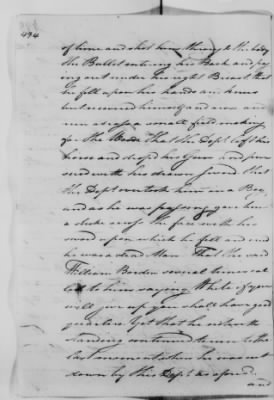 494
of him and shot him through the body
the Ballet entering his Back and pas
ing out under his right Breast that
he fell upon his hands and knees
but recovered himself and arose and
run across a small field making
for the Woods That the Dept left his
horse and droped his Gun and pur
sued with his drawn Sword that
the Dept overtook him in a Bog
and as he was passing gave him
a stroke across the face with his
sword upon which he fell and cried
he was a dead Man That the said
William Borden several times cal
led to him saying White if you
will give up you shall have good
quarters Yet that he notwith
standing continued to run to the
last moment when he was cut
down by this Dept as aforesd.
and